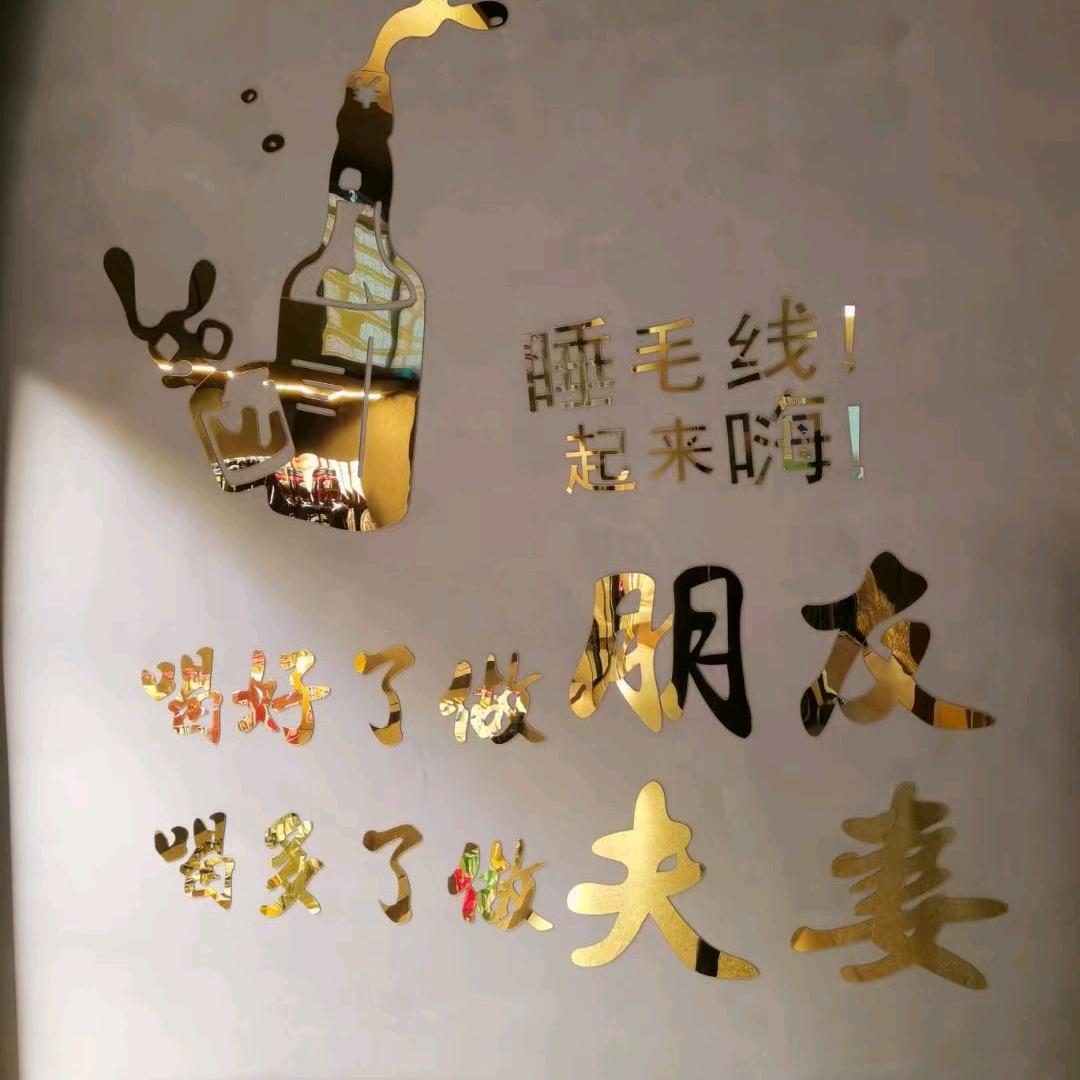 睡毛线!
起来嗨!
喝好了做朋友
喝多了做夫妻